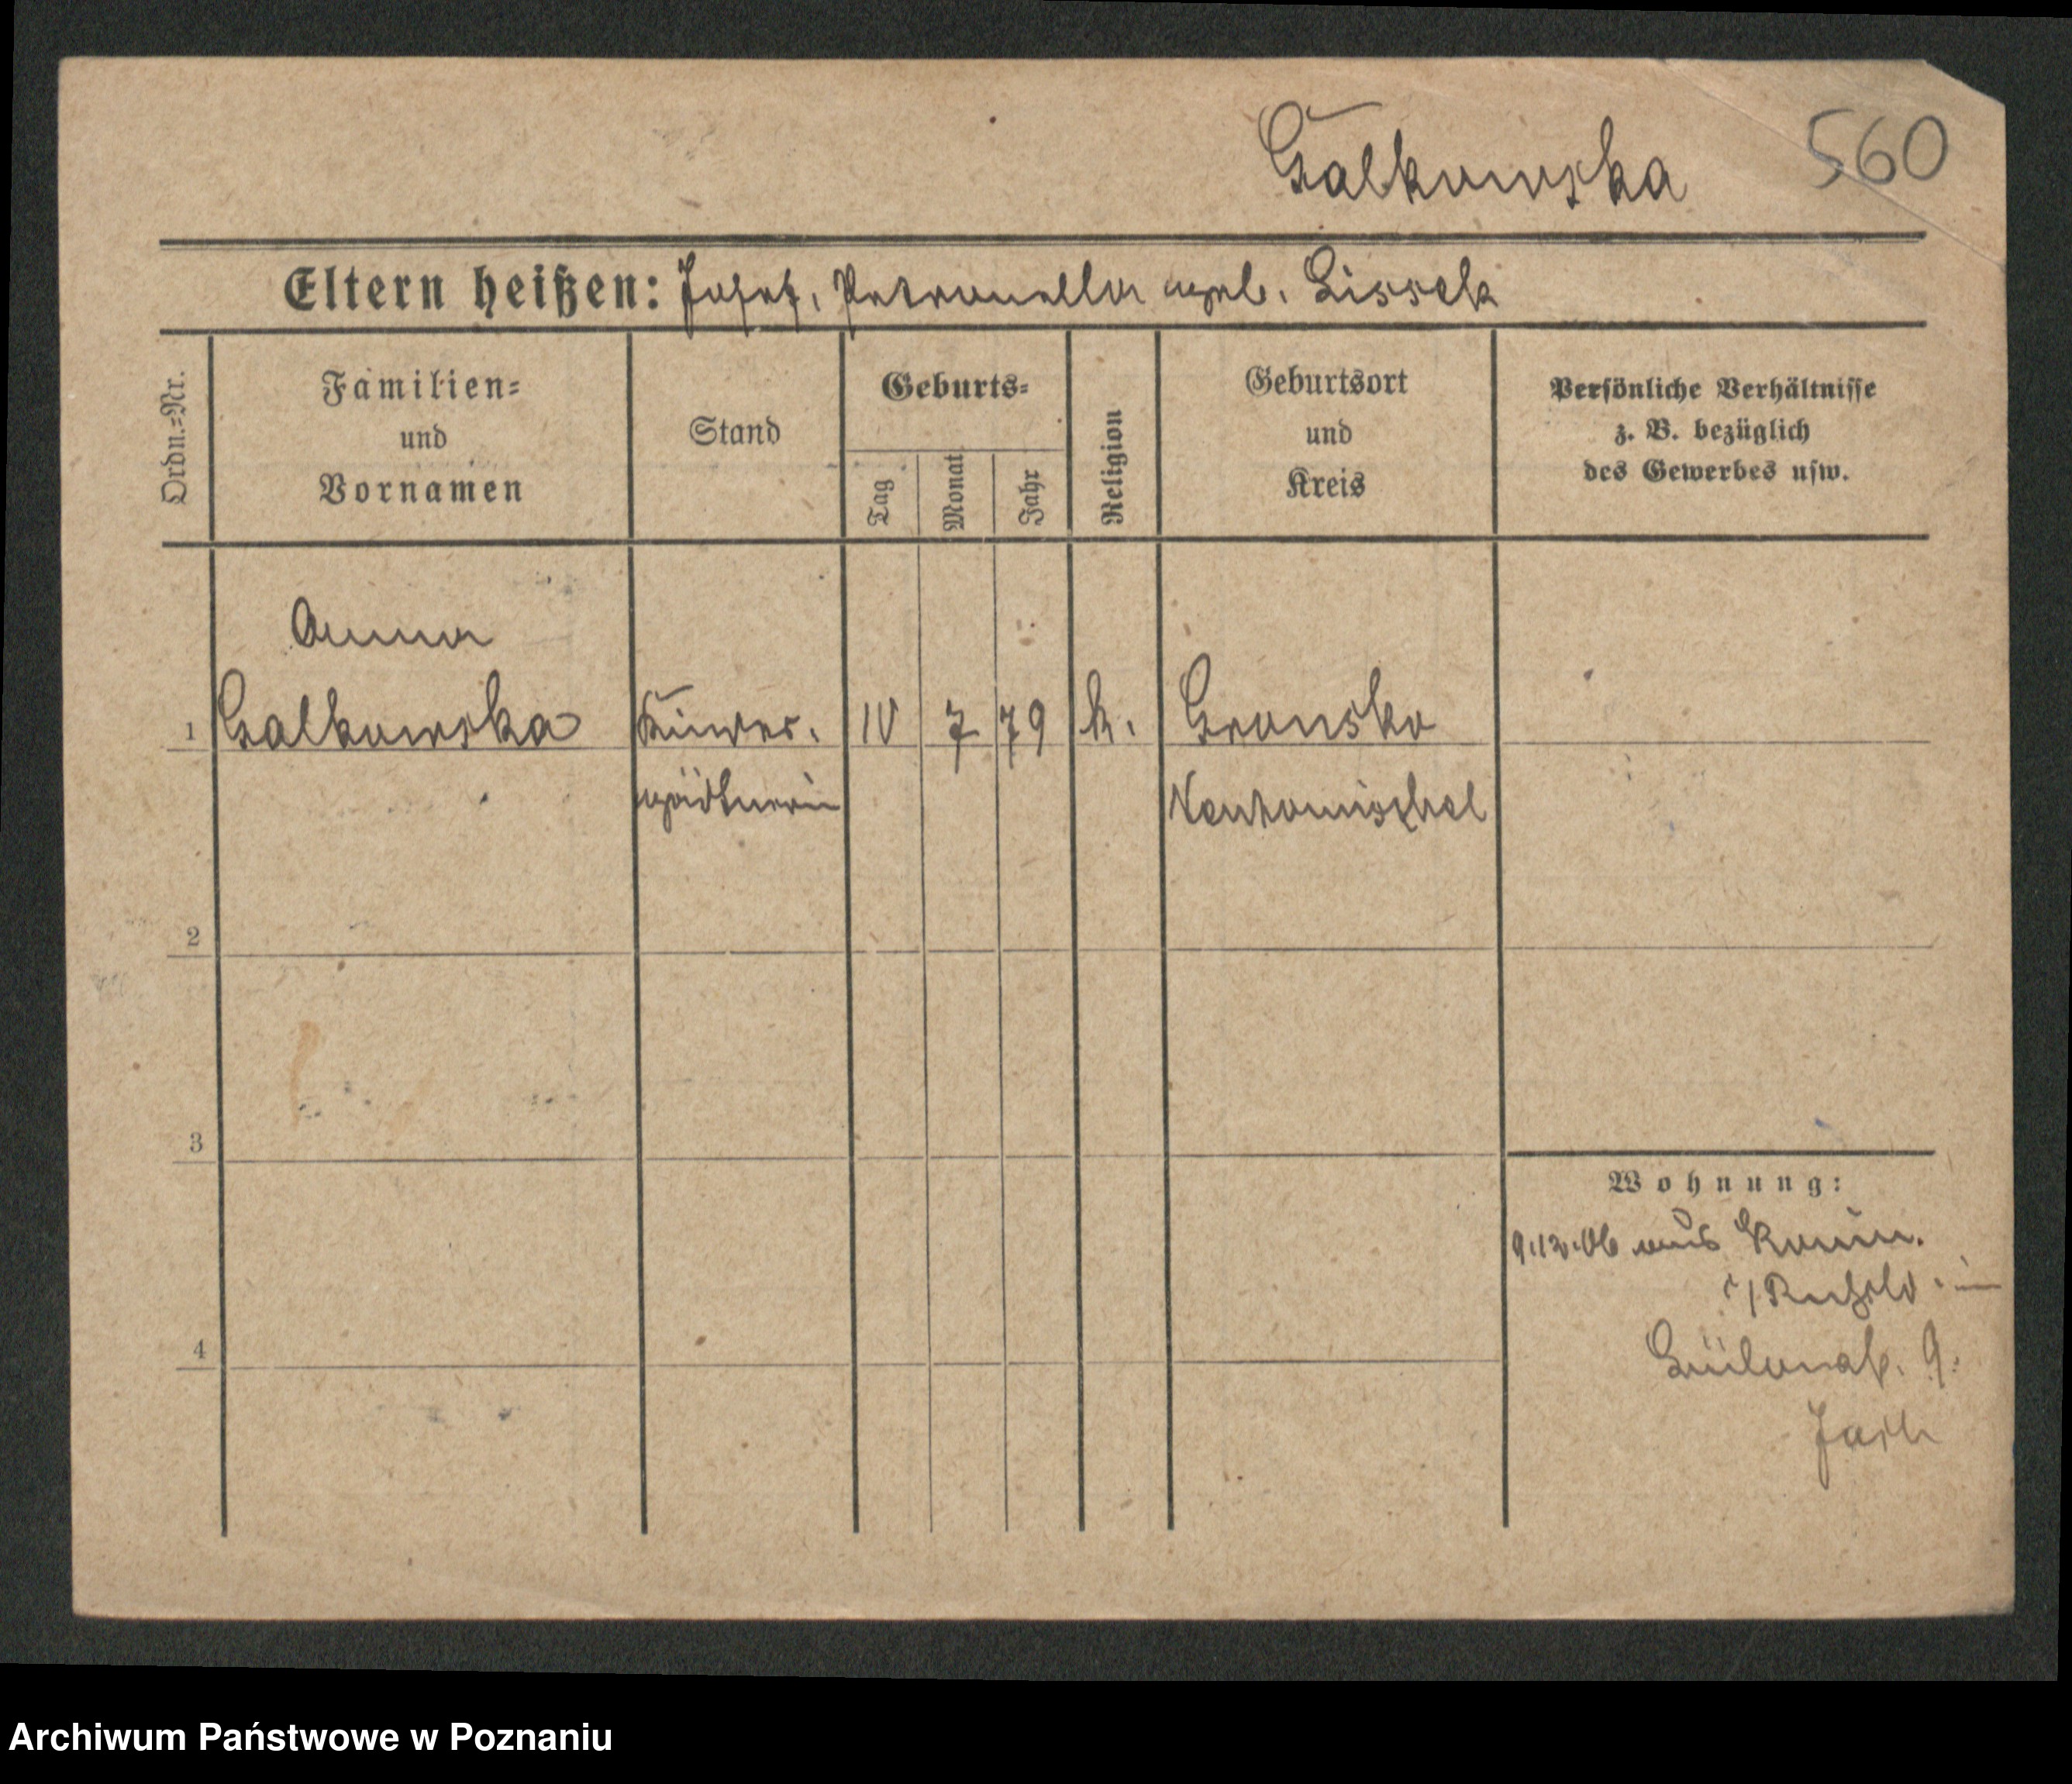 Galkowska 560
Eltern heißen: Josef, Petronella geb. Lissek
Ordn.=Nr.
Familien=
und
Vornamen
Stand
Geburts=
Tag
Monat
Jahr
Religion
Geburtsort
und
Kreis
Persönliche Verhältnisse
z. B. bezüglich
des Gewerbes usw.
Anna
1 Galkowska Kinder. 10 7 79 k. Gronsko
gärtnerin Neutomischel
2
3
Wohnung:
9.12.06 aus Konin.
i/Rußld. in
9.
4
Archiwum Państwowe w Poznaniu